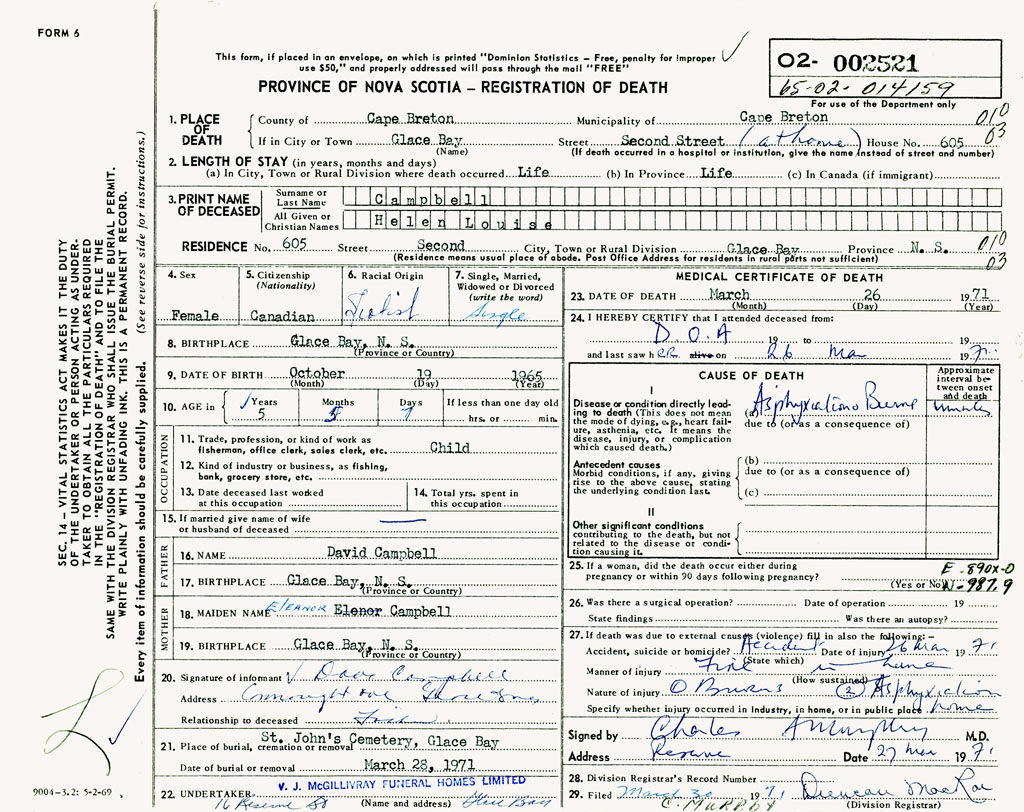 FORM 6
This form, if placed in an envelope, on which is printed "Dominion Statistics – Free, penalty for improper
use $50," and properly addressed will pass through the mail "FREE"
PROVINCE OF NOVA SCOTIA – REGISTRATION OF DEATH
02- 002521
65-02-014159
For use of the Department only
1. PLACE OF DEATH County of Cape Breton Municipality of Cape Breton 010
If in City or Town Glace Bay Street Second Street (at home) House No. 605 03
(Name) (If death occurred in a hospital or institution, give the name instead of street and number)
2. LENGTH OF STAY (in years, months and days)
(a) In City, Town or Rural Division where death occurred Life (b) In Province Life (c) In Canada (if immigrant)
3. PRINT NAME OF DECEASED Surname or Last Name Campbell
All Given or Christian Names Helen Louise
RESIDENCE No. 605 Street Second City, Town or Rural Division Glace Bay Province N. S. 010
(Residence means usual place of abode. Post Office Address for residents in rural parts not sufficient) 03
4. Sex Female
5. Citizenship (Nationality) Canadian
6. Racial Origin
7. Single, Married, Widowed or Divorced (write the word) Single
8. BIRTHPLACE Glace Bay, N. S.
(Province or Country)
9. DATE OF BIRTH October 19 1965
(Month) (Day) (Year)
10. AGE in Years 5 Months 5 Days 7 If less than one day old hrs. or min.
OCCUPATION
11. Trade, profession, or kind of work as
fisherman, office clerk, sales clerk, etc. Child
12. Kind of industry or business, as fishing,
bank, grocery store, etc.
13. Date deceased last worked
at this occupation
14. Total yrs. spent in
this occupation
15. If married give name of wife
or husband of deceased
FATHER
16. NAME David Campbell
17. BIRTHPLACE Glace Bay, N. S.
(Province or Country)
MOTHER
18. MAIDEN NAME ELEANOR Elenor Campbell
19. BIRTHPLACE Glace Bay, N. S.
(Province or Country)
20. Signature of informant Dave Campbell
Address
Relationship to deceased
21. Place of burial, cremation or removal St. John's Cemetery, Glace Bay
Date of burial or removal March 28, 1971
V. J. McGILLIVRAY FUNERAL HOMES LIMITED
22. UNDERTAKER 16 Reserve St Glace Bay
(Name and address)
MEDICAL CERTIFICATE OF DEATH
23. DATE OF DEATH March 26 1971
(Month) (Day) (Year)
24. I HEREBY CERTIFY that I attended deceased from:
D.O.A 19 to 19
and last saw her alive on 26 Mar 1971
CAUSE OF DEATH
Approximate interval between onset and death
I
Disease or condition directly leading to death (This does not mean the mode of dying, e.g., heart failure, asthenia, etc. It means the disease, injury, or complication which caused death.)
(a) Asphyxiation Burns
due to (or as a consequence of)
Antecedent causes
Morbid conditions, if any, giving rise to the above cause, stating the underlying condition last.
(b)
due to (or as a consequence of)
(c)
II
Other significant conditions
contributing to the death, but not related to the disease or condition causing it.
25. If a woman, did the death occur either during
pregnancy or within 90 days following pregnancy? (Yes or No)
E-890X-0
N-987.9
26. Was there a surgical operation? Date of operation 19
State findings Was there an autopsy?
27. If death was due to external causes (violence) fill in also the following:–
Accident, suicide or homicide? Accident Date of injury 26 Mar 1971
(State which)
Manner of injury Fire in home
(How sustained)
Nature of injury (1) Burns (2) Asphyxiation
Specify whether injury occurred in industry, in home, or in public place home
Signed by Charles A Murphy M.D.
Address Reserve Date 27 Mar 1971
28. Division Registrar's Record Number
29. Filed March 30 1971 Duncan MacRae
C. MURPHY (Division Registrar)
SEC. 14 – VITAL STATISTICS ACT MAKES IT THE DUTY
OF THE UNDERTAKER OR PERSON ACTING AS UNDER-
TAKER TO OBTAIN ALL THE PARTICULARS REQUIRED
IN THE "REGISTRATION OF DEATH" AND TO FILE THE
SAME WITH THE DIVISION REGISTRAR WHO SHALL ISSUE THE BURIAL PERMIT.
WRITE PLAINLY WITH UNFADING INK. THIS IS A PERMANENT RECORD.
Every item of information should be carefully supplied. (See reverse side for instructions.)
9004-3.2: 5-2-69